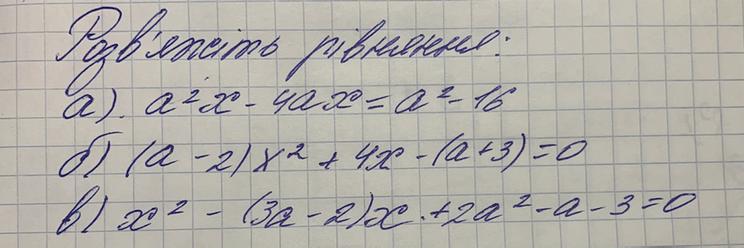 Розв'яжіть рівняння:
а). a²x - 4ax = a² - 16
б) (a - 2)x² + 4x - (a+3) = 0
в) x² - (3a - 2)x + 2a² - a - 3 = 0